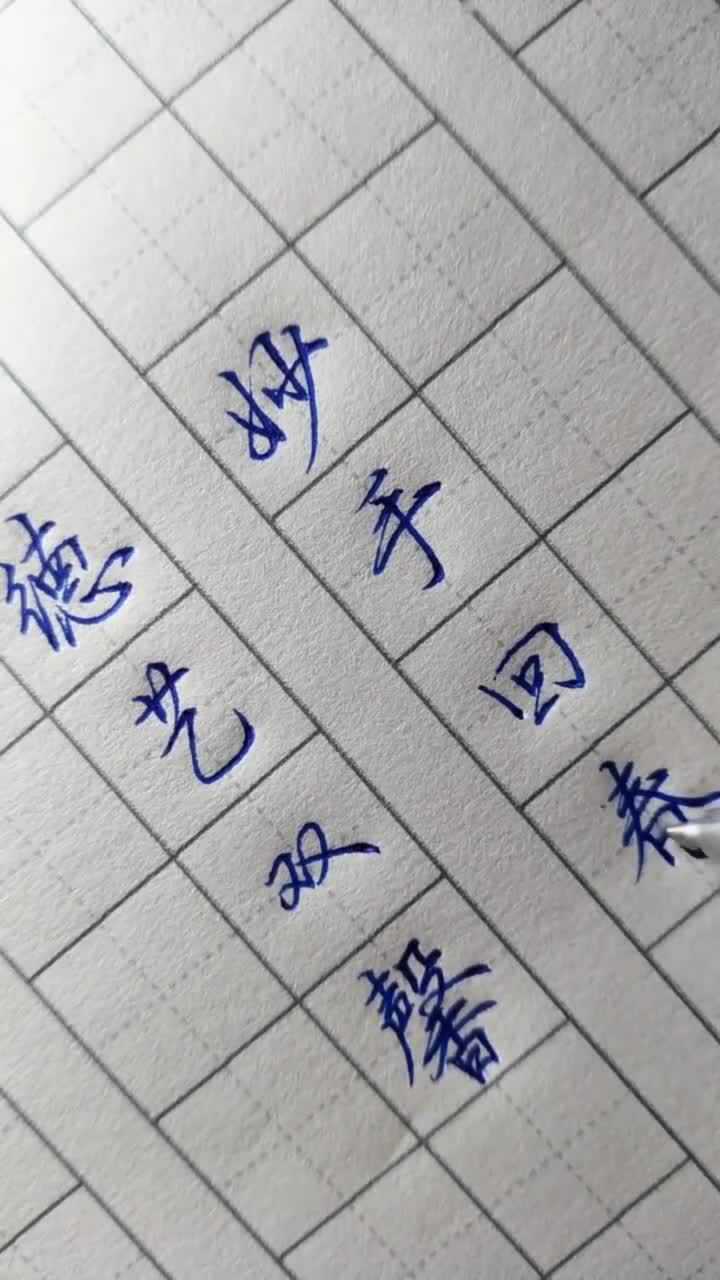 妙手回春
德艺双馨